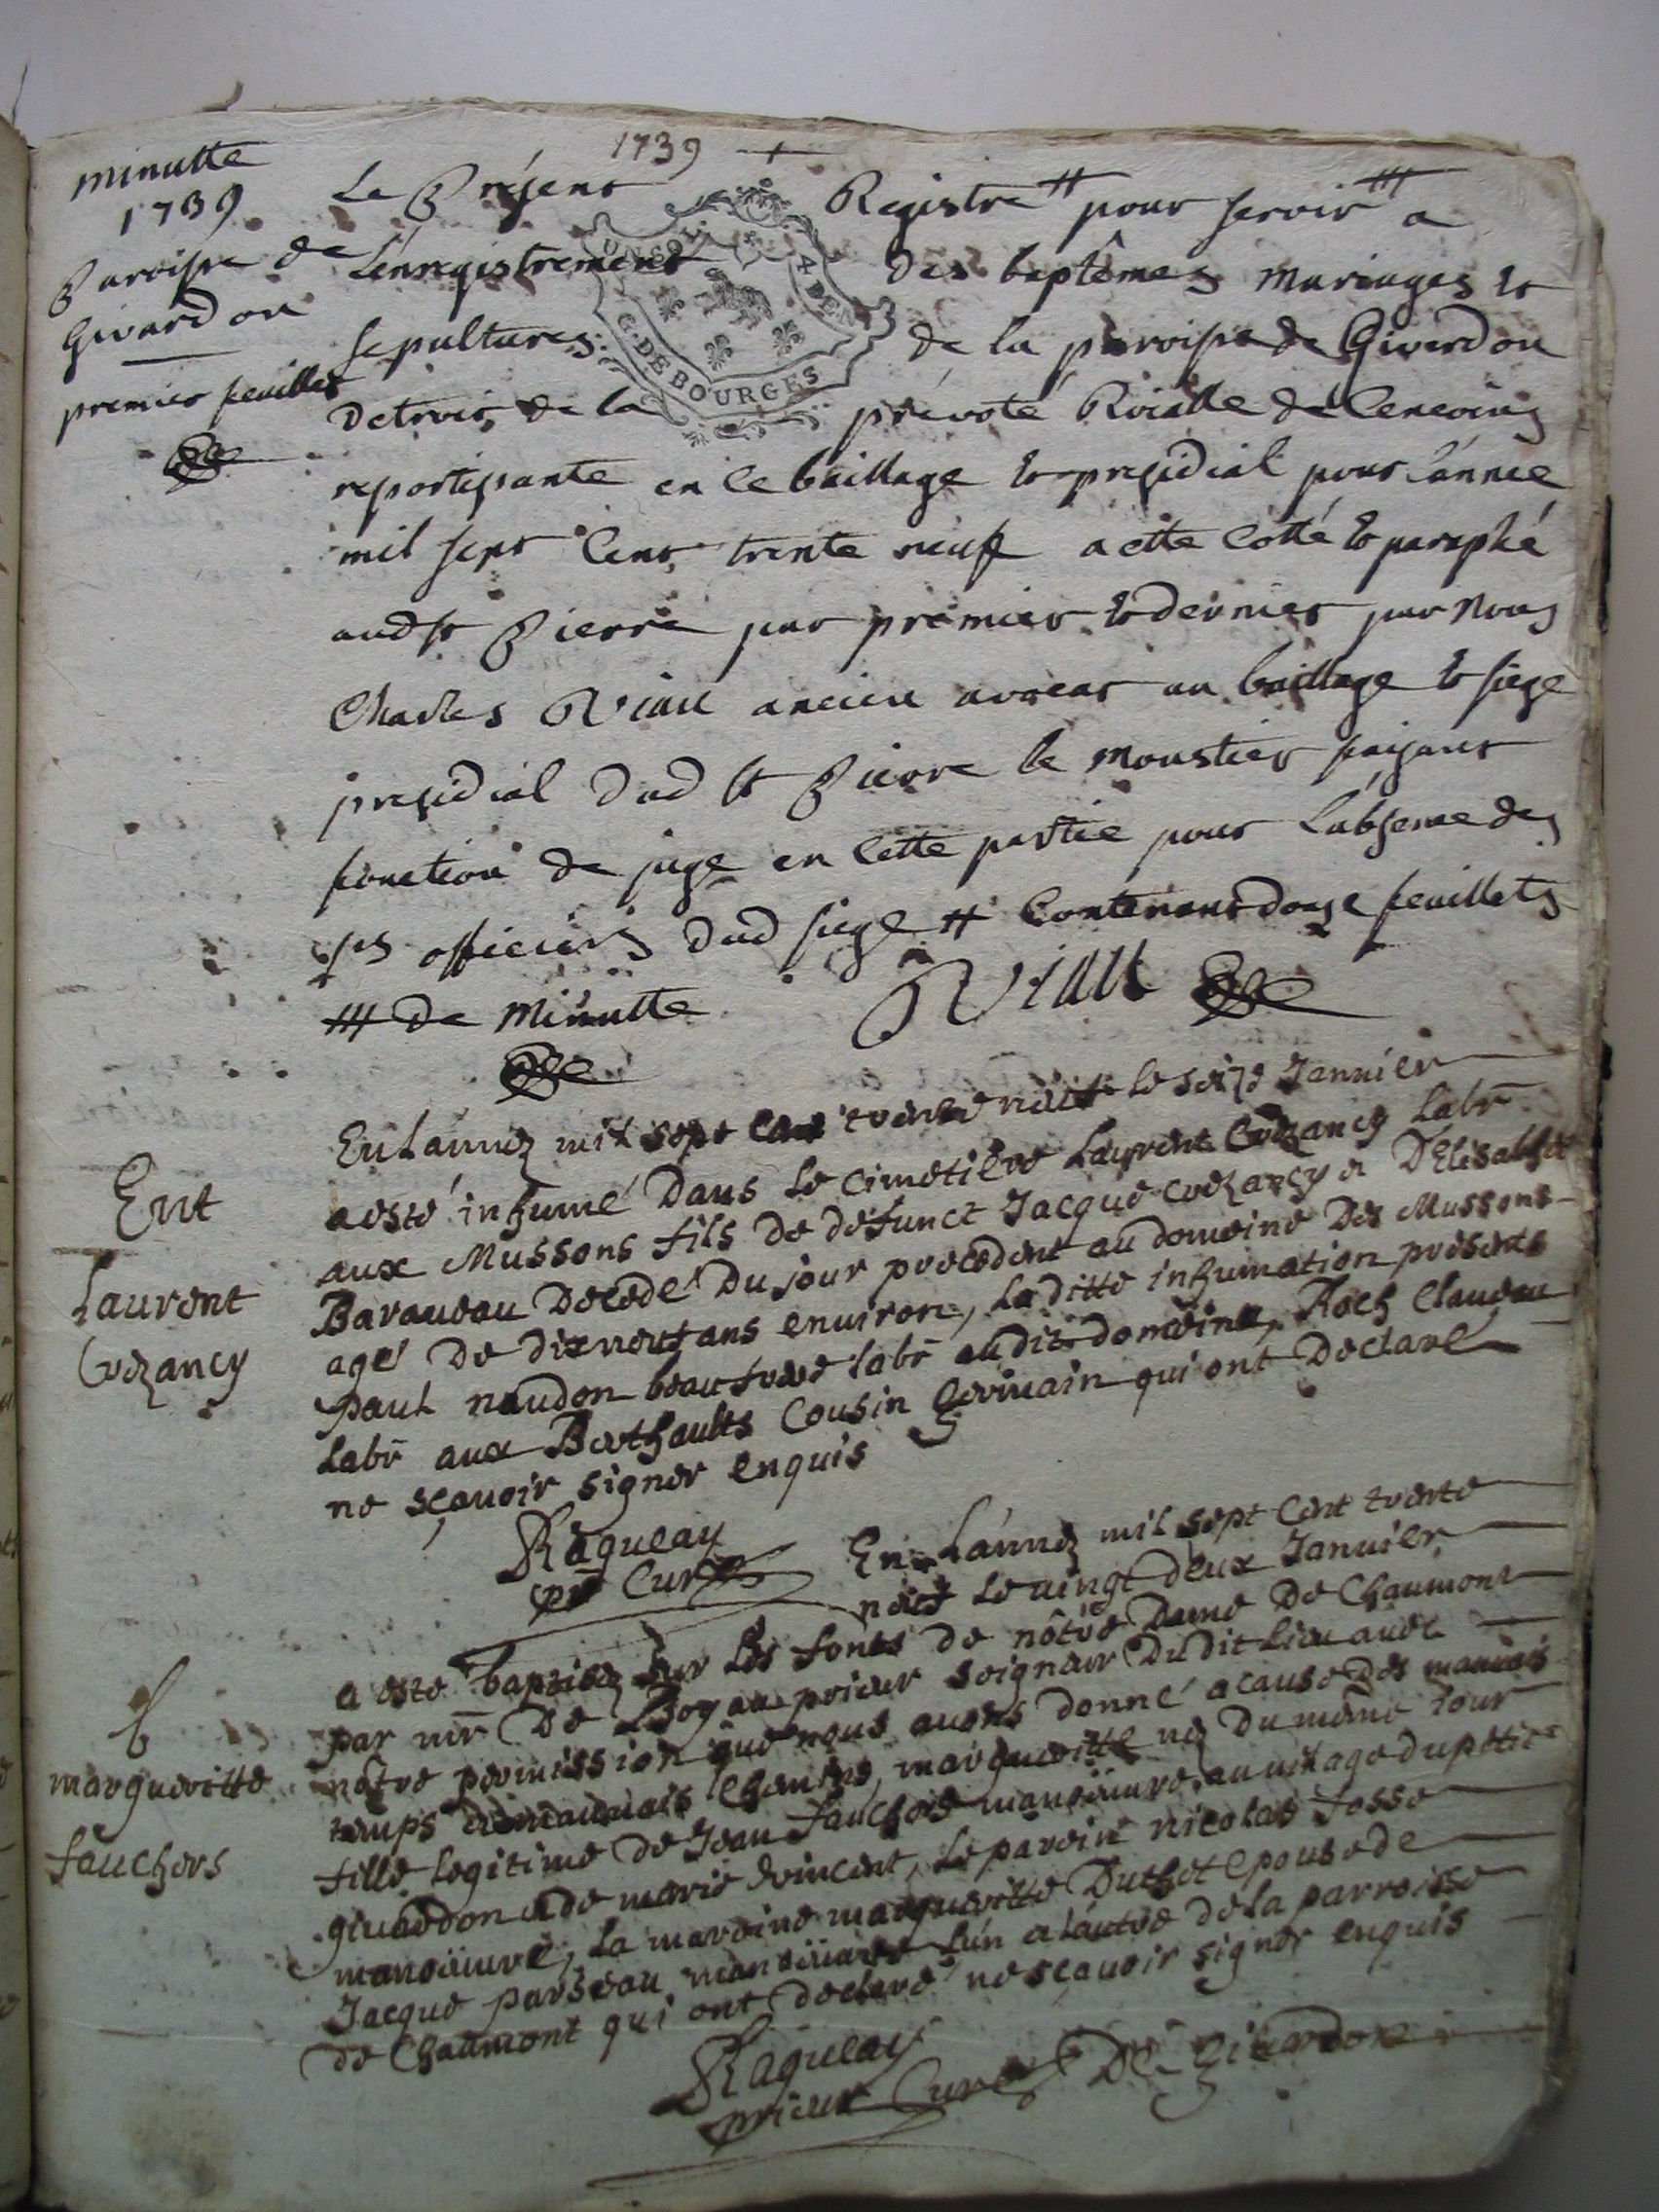 1739
minutte
1739
Paroisse de
Givardon
premier feuillet
Le Present Registre # pour servir a
L'enregistrement des baptêmes mariages et
sepultures de la paroisse de Givardon
detrois de la prevoté Roialle de Cencoing
en le baillage et presidial pour l'année
mil sept Cent trente neuf a ette Cotté et paraphé
aud st Pierre par premier et dernier par Nous
Charles Viau ancien avocat au baillage et siege
presidial dud st Pierre le Moustier faisant
fonction de juge en cette partie pour l'absence des
srs officiers dud siege # Contenant douze feuillets
de Minutte
Viau
UN SOL 4 DEN
G. DE BOURGES
Ent
Laurent
Cozancy
En L'annéz mil sept cent trente neuf le seize Januier
a esté inhumé Dans le cimetière Laurent Cozancy labr
aux Mussons fils de defunct Jacque Cozancy et D'Elisabeth
Baraudau Décédé Du jour precedent au domeine Des Mussons
agé De dixneuf ans enuiron, laditte inhumation présents
paul naudon beaufrere labr audit domeine, Roch Claudeau
labr aux Berthaults Cousin Germain qui ont Declaré
ne sçauoir signer enquis
Ragueau
pr Curé
b
margueritte
fauchers
En L'annéz mil sept Cent trente
neuf le uingt deux Januier
a esté baptisez sur les fonts de nôtre Dame De Chaumont
par mr De prieur seigneur Du dit Lieu auec
nôtre permission que nous auons donné a cause Des mauuais
temps mauuais Chemins, margueritte néz Du même jour
fille legitime de Jean fauchers manœuure, au uilage du petit
giuardon et de marie vincent, le parein nicolas fosse
manœuure, la mareine margueritte Duthet epouse de
Jacque parseau manœuure L'un et L'autre de la parroisse
de Chaumont qui ont declaré ne scauoir signer enquis
Ragueau
prieur Curé De Givardon